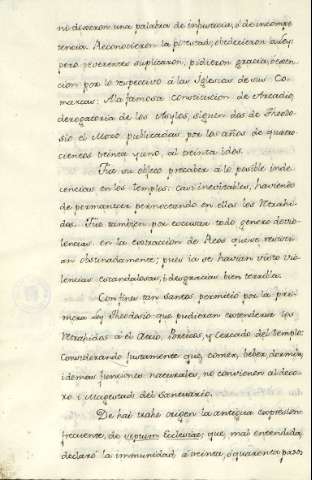 no dixeron una palabra de injusticia, ó de incompe
tencia. Reconocieron la potestad; obedecieron la ley
pero reverentes suplicaron, pidieron gracia, y exen
cion por lo respectivo á las Iglesias de sus Co
marcas: A la famosa constitucion de Arcadio,
derogatoria de los Asylos, siguen dos de Theodo
sio el Mozo publicadas por los años de quatro
cientos treinta y uno, al treinta i dos.
Fue su objeto precaber á lo posible inde
cencias en los templos: casi inevitables, haviendo
de permanecer pernoctando en ellos los Retrahi
dos. Fue tambien por escusar todo genero de vio
lencias en la extraccion de Reos que se resistian
obstinadamente; pues ia se havian visto vio
lencias escandalosas, i desgracias bien terribles.
Con fines tan santos permitió por la pri
mera Ley Theodosio que pudieran extenderse los
Retrahidos á el Atrio, Porticos, y Cercado del Templo:
Considerando justamente que, comer, beber, dormir,
i demas funciones naturales, no convienen al deco
ro i Magestad del Santuario.
De hai trahe origen la antigua expression
frecuente, de septum Ecclesiae; que, mal entendida,
declaró la immunidad á treinta, o quarenta pasos